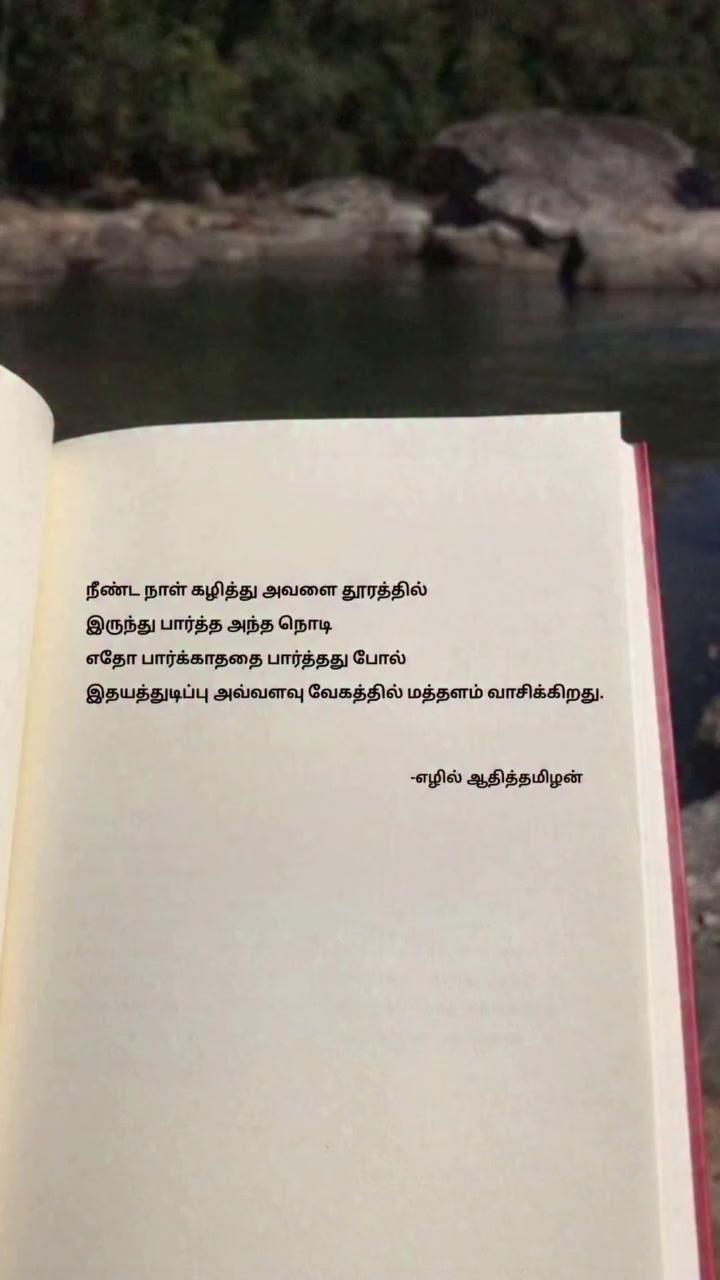 நீண்ட நாள் கழித்து அவளை தூரத்தில்
இருந்து பார்த்த அந்த நொடி
எதோ பார்க்காததை பார்த்தது போல்
இதயத்துடிப்பு அவ்வளவு வேகத்தில் மத்தளம் வாசிக்கிறது.
-எழில் ஆதித்தமிழன்